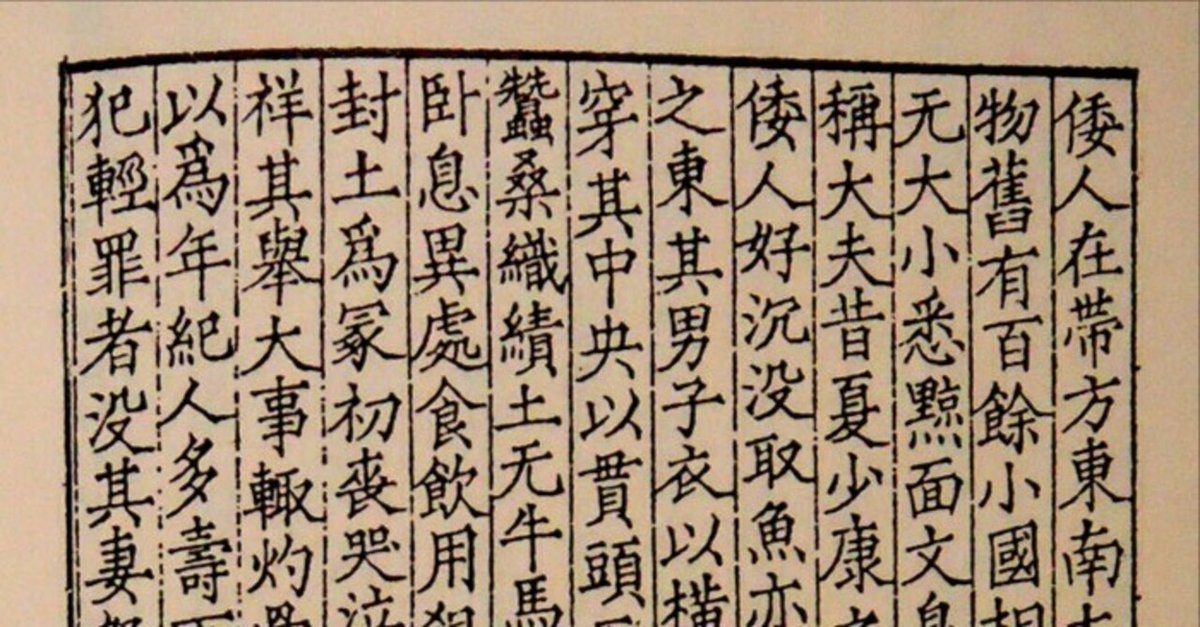 倭人在帶方東南
物舊有百餘小國
无大小悉黥面文
稱大夫昔夏少康
倭人好沉没取魚亦
之東其男子衣以橫
穿其中央以貫頭
蠶桑織績土无牛馬
卧息異處食飲用
封土爲冢初喪哭泣
祥其舉大事輙灼
以爲年紀人多壽
犯輕罪者没其妻